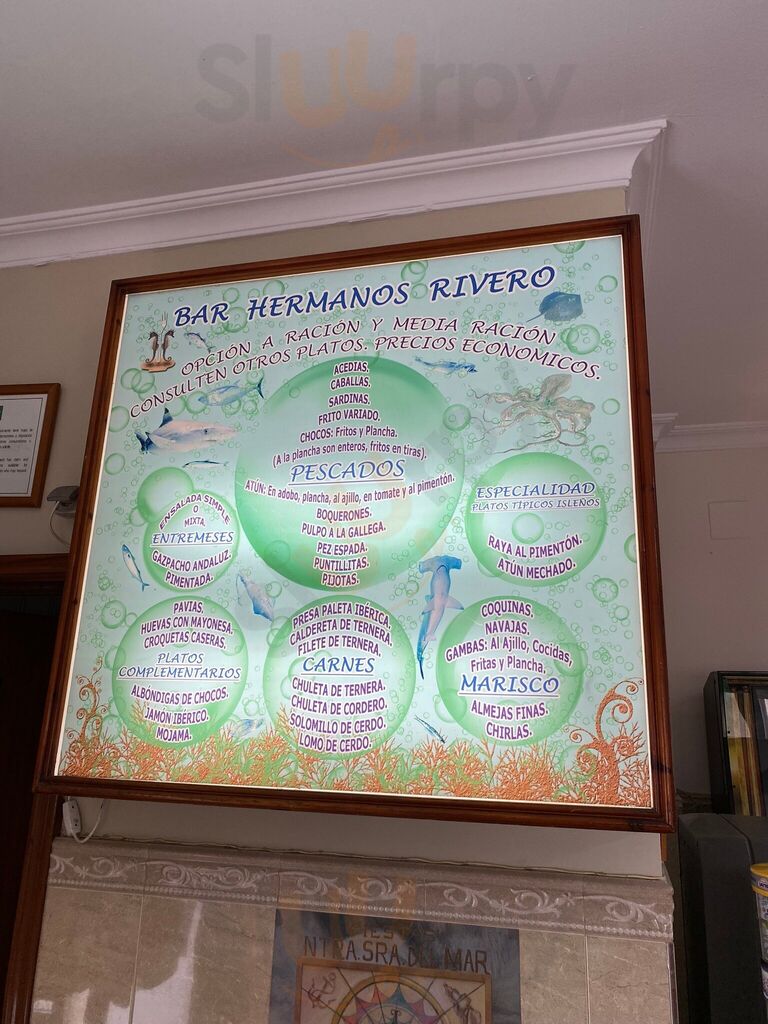 Sluurpy
BAR HERMANOS RIVERO
OPCIÓN A RACIÓN Y MEDIA RACIÓN
CONSULTEN OTROS PLATOS. PRECIOS ECONOMICOS.
ACEDIAS.
CABALLAS.
SARDINAS.
FRITO VARIADO.
CHOCOS: Fritos y Plancha.
(A la plancha son enteros, fritos en tiras).
PESCADOS
ATÚN: En adobo, plancha, al ajillo, en tomate y al pimentón.
BOQUERONES.
PULPO A LA GALLEGA.
PEZ ESPADA.
PUNTILLITAS.
PIJOTAS.
ENSALADA SIMPLE
O
MIXTA.
ENTREMESES
GAZPACHO ANDALUZ.
PIMENTADA.
ESPECIALIDAD
PLATOS TÍPICOS ISLEÑOS
RAYA AL PIMENTÓN.
ATÚN MECHADO.
PAVIAS.
HUEVAS CON MAYONESA.
CROQUETAS CASERAS.
PLATOS
COMPLEMENTARIOS
ALBÓNDIGAS DE CHOCOS.
JAMÓN IBÉRICO.
MOJAMA.
PRESA PALETA IBÉRICA.
CALDERETA DE TERNERA.
FILETE DE TERNERA.
CARNES
CHULETA DE TERNERA.
CHULETA DE CORDERO.
SOLOMILLO DE CERDO.
LOMO DE CERDO.
COQUINAS.
NAVAJAS.
GAMBAS: Al Ajillo, Cocidas,
Fritas y Plancha.
MARISCO
ALMEJAS FINAS.
CHIRLAS.
NTRA.SRA.DEL MAR